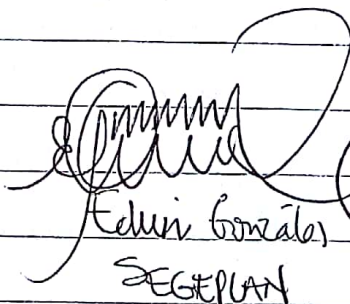 Edwin González
SEGEPLAN